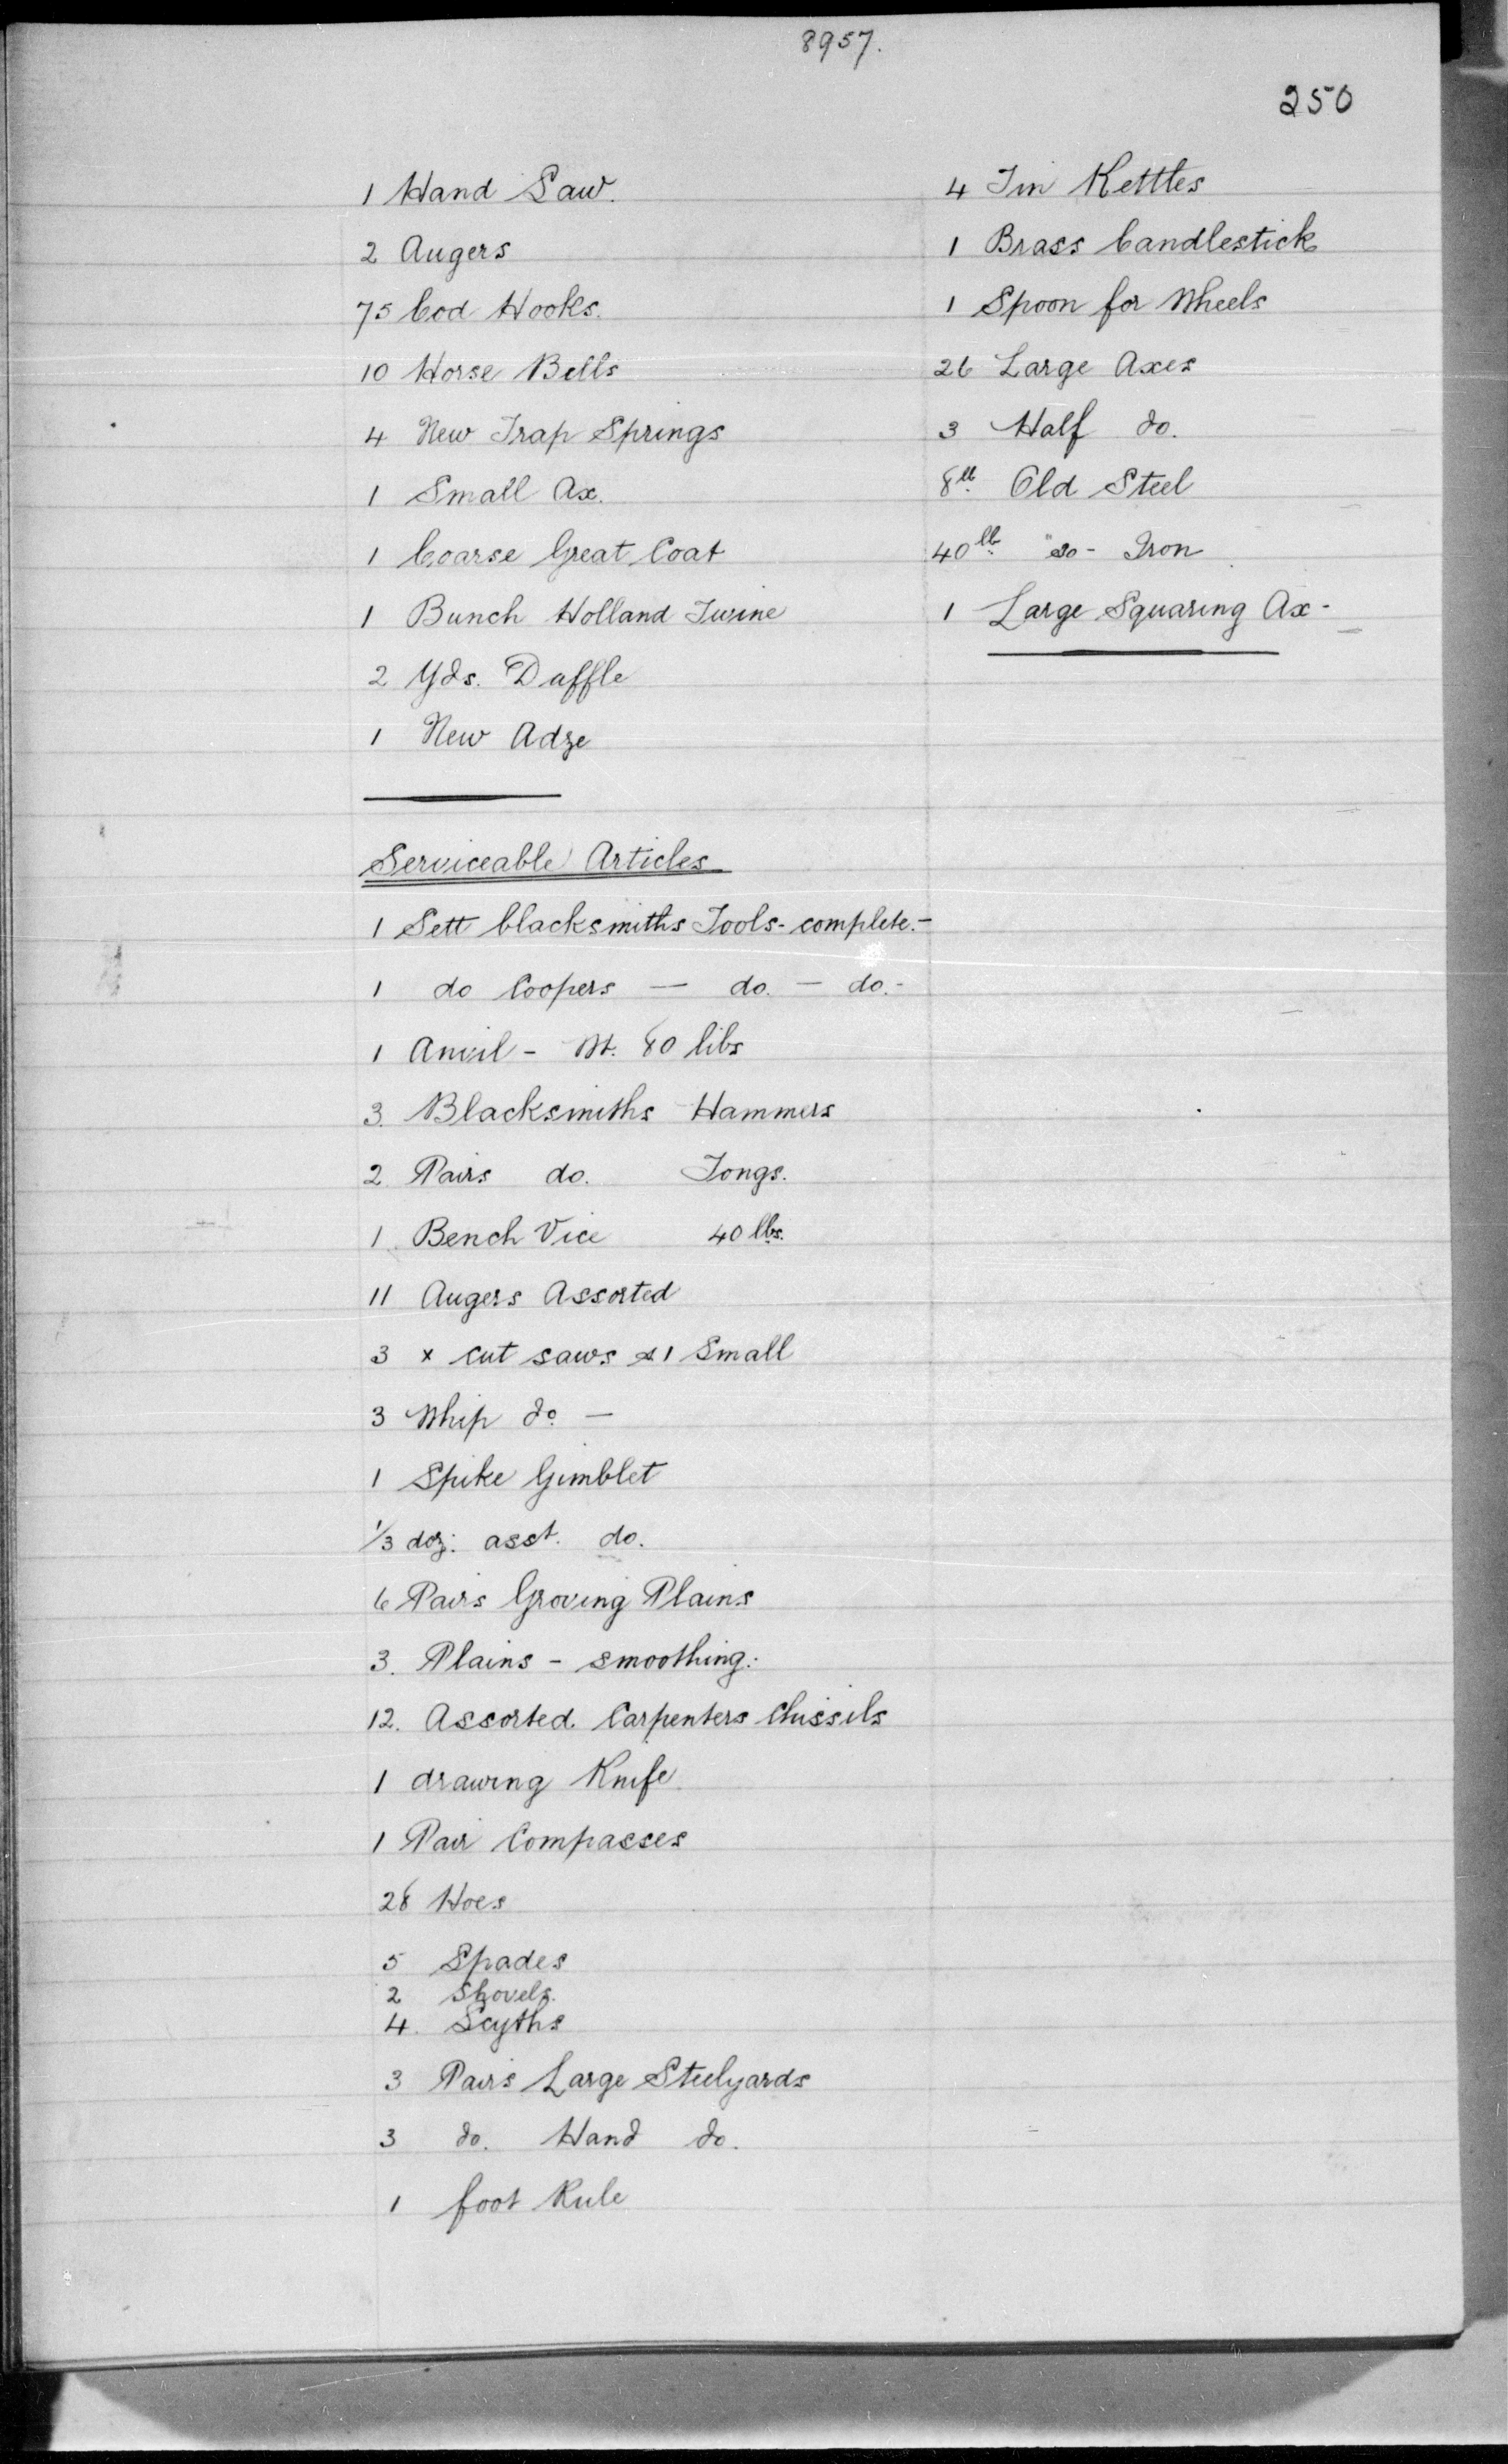 8957.
250
1 Hand Saw.
2 Augers
75 Cod Hooks.
10 Horse Bells
4 New Trap Springs
1 Small Ax.
1 Coarse Great Coat
1 Bunch Holland Twine
2 Yds. Daffle
1 New Adze
4 Tin Kettles
1 Brass Candlestick
1 Spoon for Wheels
26 Large Axes
3 Half do.
8lb. Old Steel
40lb. do - Iron
1 Large Squaring Ax -
Serviceable Articles
1 Sett blacksmiths Tools - complete. -
1 do Coopers — do. — do. -
1 Anvil - Wt. 80 libs
3. Blacksmiths Hammers
2 Pairs do. Tongs.
1 Bench Vice 40 lbs.
11 Augers Assorted
3 x cut saws & 1 Small
3 Whip do. —
1 Spike Gimblet
1/3 doz: asst. do.
6 Pairs Groving Plains
3. Plains - smoothing:
12. Assorted Carpenters Chissils
1 drawing Knife
1 Pair Compasses
28 Hoes
5 Spades
2 Shovels.
4. Scyths
3 Pairs Large Steelyards
3 do. Hand do.
1 foot Rule